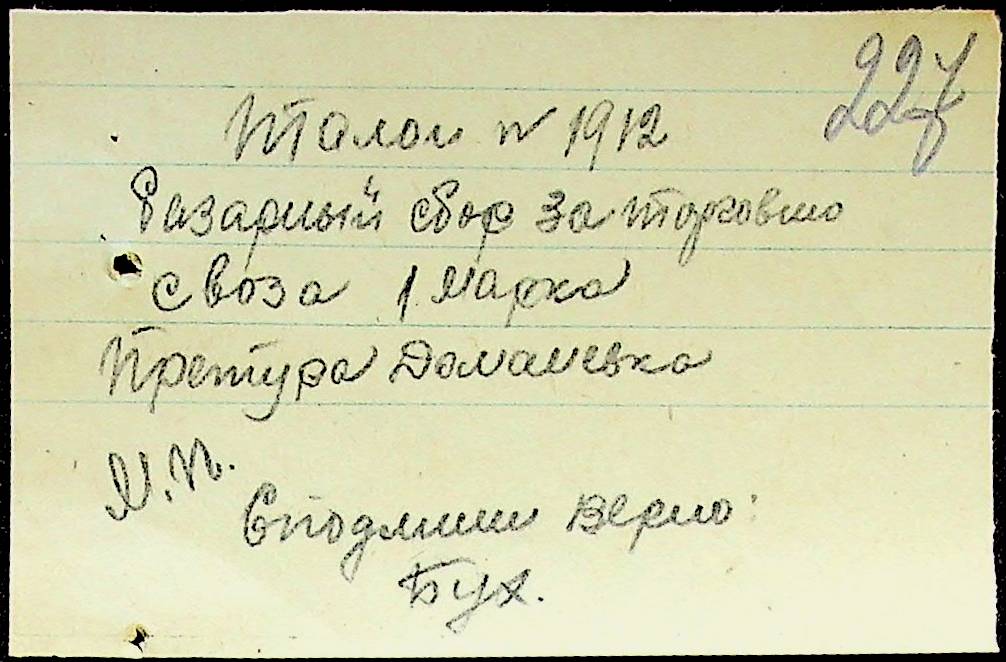 227
Талон № 1912
Базарный сбор за торговлю
с воза 1 марка
Претура Доманевка
М.П.
С подлин верно:
Бух.